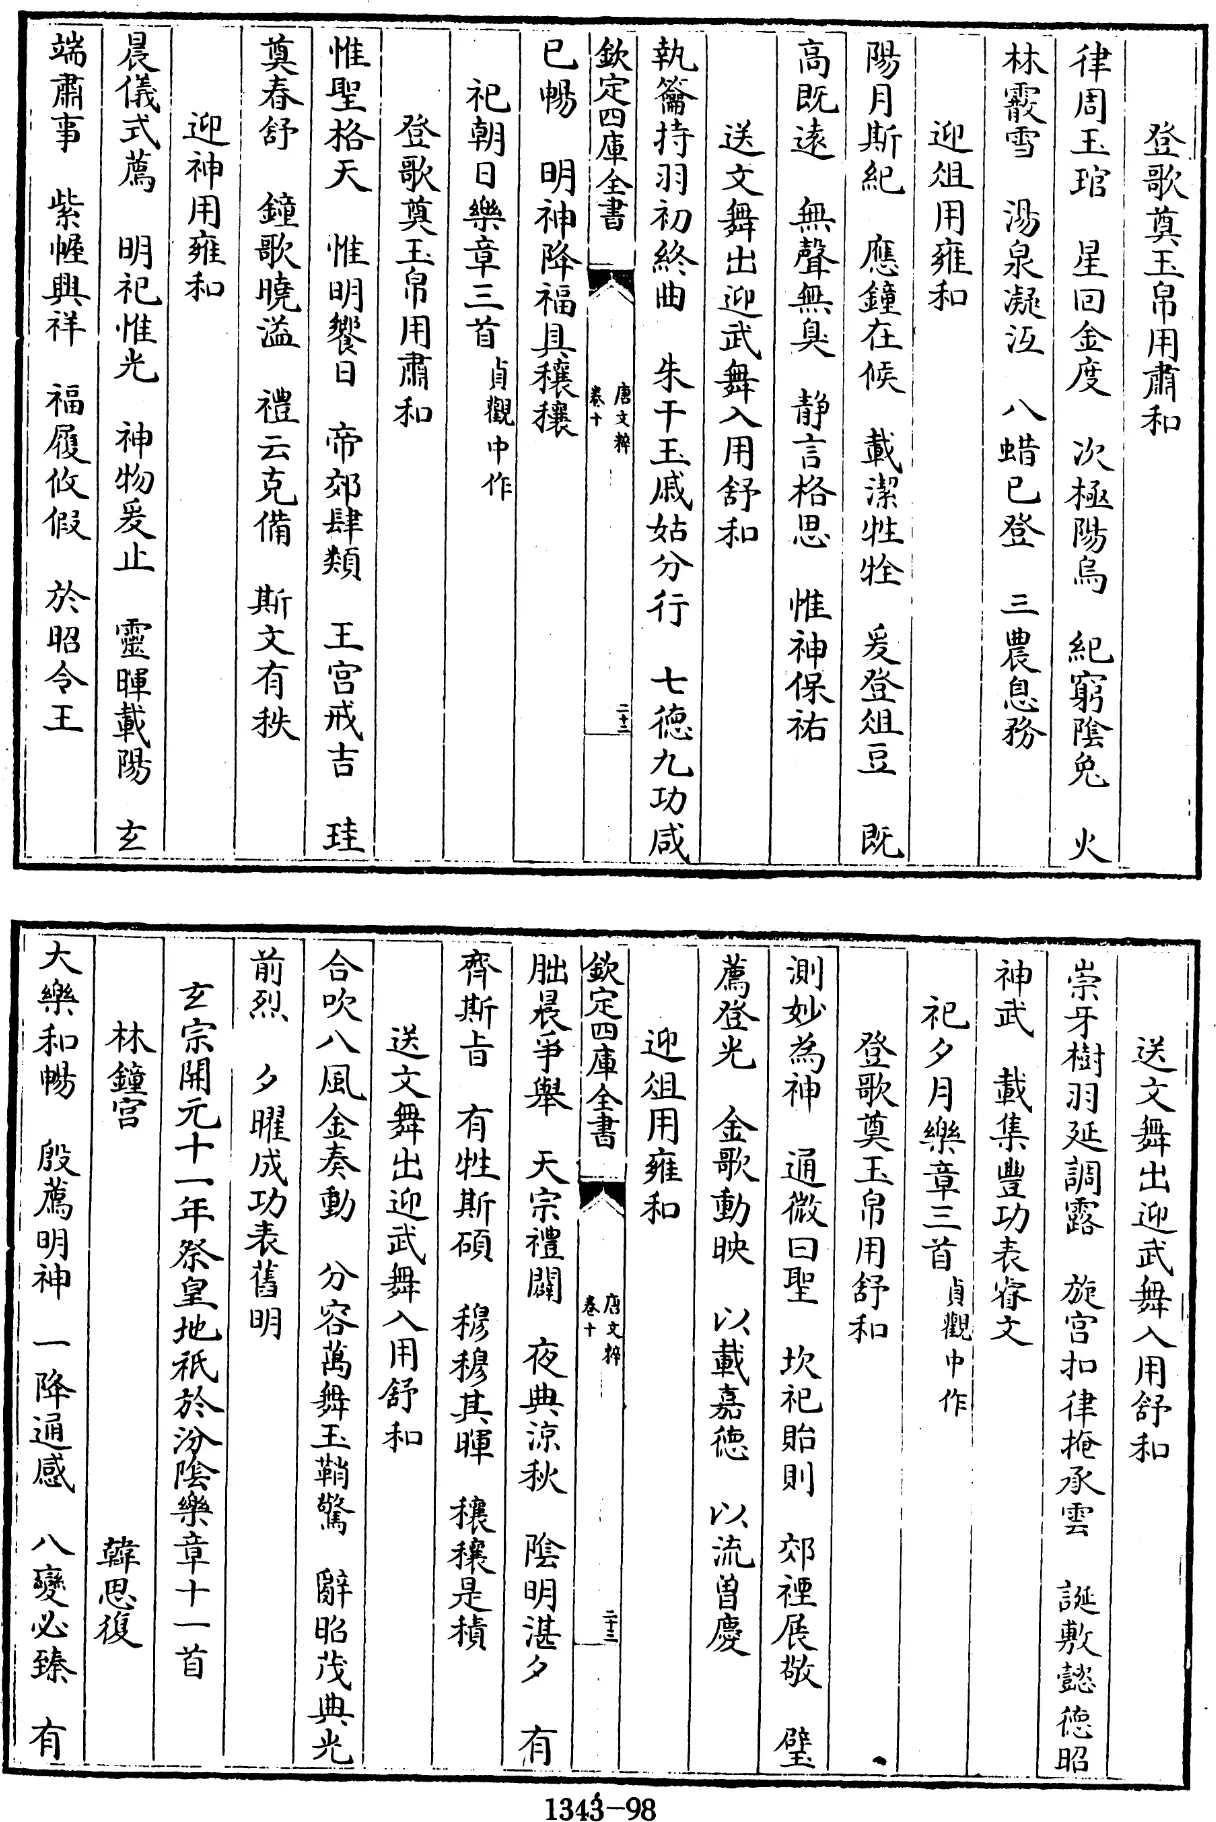 登歌奠玉帛用肅和
律周玉琯　星回金度　次極陽烏　紀窮陰兔　火
林霰雪　湯泉凝沍　八蜡已登　三農息務
迎俎用雍和
陽月斯紀　應鐘在候　載潔牲牷　爰登俎豆　既
高既遠　無聲無臭　靜言格思　惟神保祐
送文舞出迎武舞入用舒和
執籥持羽初終曲　朱干玉戚始分行　七德九功咸
欽定四庫全書　唐文粹　卷十　二十二
已暢　明神降福具穰穰
祀朝日樂章三首　貞觀中作
登歌奠玉帛用肅和
惟聖格天　惟明饗日　帝郊肆類　王宮戒吉　珪
奠春舒　鐘歌曉溢　禮云克備　斯文有秩
迎神用雍和
晨儀式薦　明祀惟光　神物爰止　靈暉載陽　玄
端肅事　紫幄興祥　福履攸假　於昭令王
送文舞出迎武舞入用舒和
崇牙樹羽延調露　旋宮扣律掩承雲　誕敷懿德昭
神武　載集豐功表睿文
祀夕月樂章三首　貞觀中作
登歌奠玉帛用舒和
測妙為神　通微曰聖　坎祀貽則　郊禋展敬　璧
薦登光　金歌動映　以載嘉德　以流曽慶
迎俎用雍和
欽定四庫全書　唐文粹　卷十　二十三
朏晨爭舉　天宗禮闢　夜典涼秋　陰明湛夕　有
齊斯㫖　有牲斯碩　穆穆其暉　穰穰是積
送文舞出迎武舞入用舒和
合吹八風金奏動　分容萬舞玉鞘驚　辭昭茂典光
前烈　夕曜成功表舊明
玄宗開元十一年祭皇地祇於汾陰樂章十一首
林鐘宮　韓思復
大樂和暢　殷薦明神　一降通感　八變必臻　有
1343-98